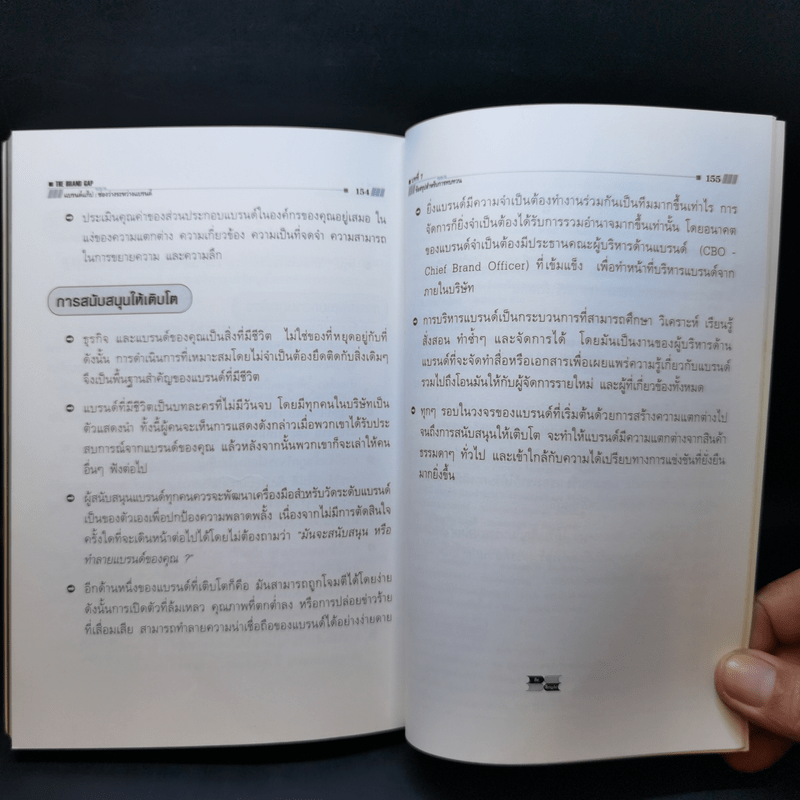 THE BRAND GAP
แบรนด์แก๊ป : ช่องว่างระหว่างแบรนด์
154
ประเมินคุณค่าของส่วนประกอบแบรนด์ในองค์กรของคุณอยู่เสมอ ใน
แง่ของความแตกต่าง ความเกี่ยวข้อง ความเป็นที่จดจำ ความสามารถ
ในการขยายความ และความลึก
การสนับสนุนให้เติบโต
ธุรกิจ และแบรนด์ของคุณเป็นสิ่งที่มีชีวิต ไม่ใช่ของที่หยุดอยู่กับที่
ดังนั้น การดำเนินการที่เหมาะสมโดยไม่จำเป็นต้องยึดติดกับสิ่งเดิมๆ
จึงเป็นพื้นฐานสำคัญของแบรนด์ที่มีชีวิต
แบรนด์ที่มีชีวิตเป็นบทละครที่ไม่มีวันจบ โดยมีทุกคนในบริษัทเป็น
ตัวแสดงนำ ทั้งนี้ผู้คนจะเห็นการแสดงดังกล่าวเมื่อพวกเขาได้รับประ
สบการณ์จากแบรนด์ของคุณ แล้วหลังจากนั้นพวกเขาก็จะเล่าให้คน
อื่นๆ ฟังต่อไป
ผู้สนับสนุนแบรนด์ทุกคนควรจะพัฒนาเครื่องมือสำหรับวัดระดับแบรนด์
เป็นของตัวเองเพื่อปกป้องความพลาดพลั้ง เนื่องจากไม่มีการตัดสินใจ
ครั้งใดที่จะเดินหน้าต่อไปได้โดยไม่ต้องถามว่า "มันจะสนับสนุน หรือ
ทำลายแบรนด์ของคุณ ?"
อีกด้านหนึ่งของแบรนด์ที่เติบโตก็คือ มันสามารถถูกโจมตีได้โดยง่าย
ดังนั้นการเปิดตัวที่ล้มเหลว คุณภาพที่ตกต่ำลง หรือการปล่อยข่าวร้าย
ที่เสื่อมเสีย สามารถทำลายความน่าเชื่อถือของแบรนด์ได้อย่างง่ายดาย
155
ยิ่งแบรนด์มีความจำเป็นต้องทำงานร่วมกันเป็นทีมมากขึ้นเท่าไร การ
จัดการก็ยิ่งจำเป็นต้องได้รับการรวมอำนาจมากขึ้นเท่านั้น โดยอนาคต
ของแบรนด์จำเป็นต้องมีประธานคณะผู้บริหารด้านแบรนด์ (CBO -
Chief Brand Officer) ที่เข้มแข็ง เพื่อทำหน้าที่บริหารแบรนด์จาก
ภายในบริษัท
การบริหารแบรนด์เป็นกระบวนการที่สามารถศึกษา วิเคราะห์ เรียนรู้
สั่งสอน ทำซ้ำๆ และจัดการได้ โดยมันเป็นงานของผู้บริหารด้าน
แบรนด์ที่จะจัดทำสื่อหรือเอกสารเพื่อเผยแพร่ความรู้เกี่ยวกับแบรนด์
รวมไปถึงโอนมันให้กับผู้จัดการรายใหม่ และผู้ที่เกี่ยวข้องทั้งหมด
ทุกๆ รอบในวงจรของแบรนด์ที่เริ่มต้นด้วยการสร้างความแตกต่างไป
จนถึงการสนับสนุนให้เติบโต จะทำให้แบรนด์มีความแตกต่างจากสินค้า
ธรรมดาๆ ทั่วไป และเข้าใกล้กับความได้เปรียบทางการแข่งขันที่ยั่งยืน
มากยิ่งขึ้น